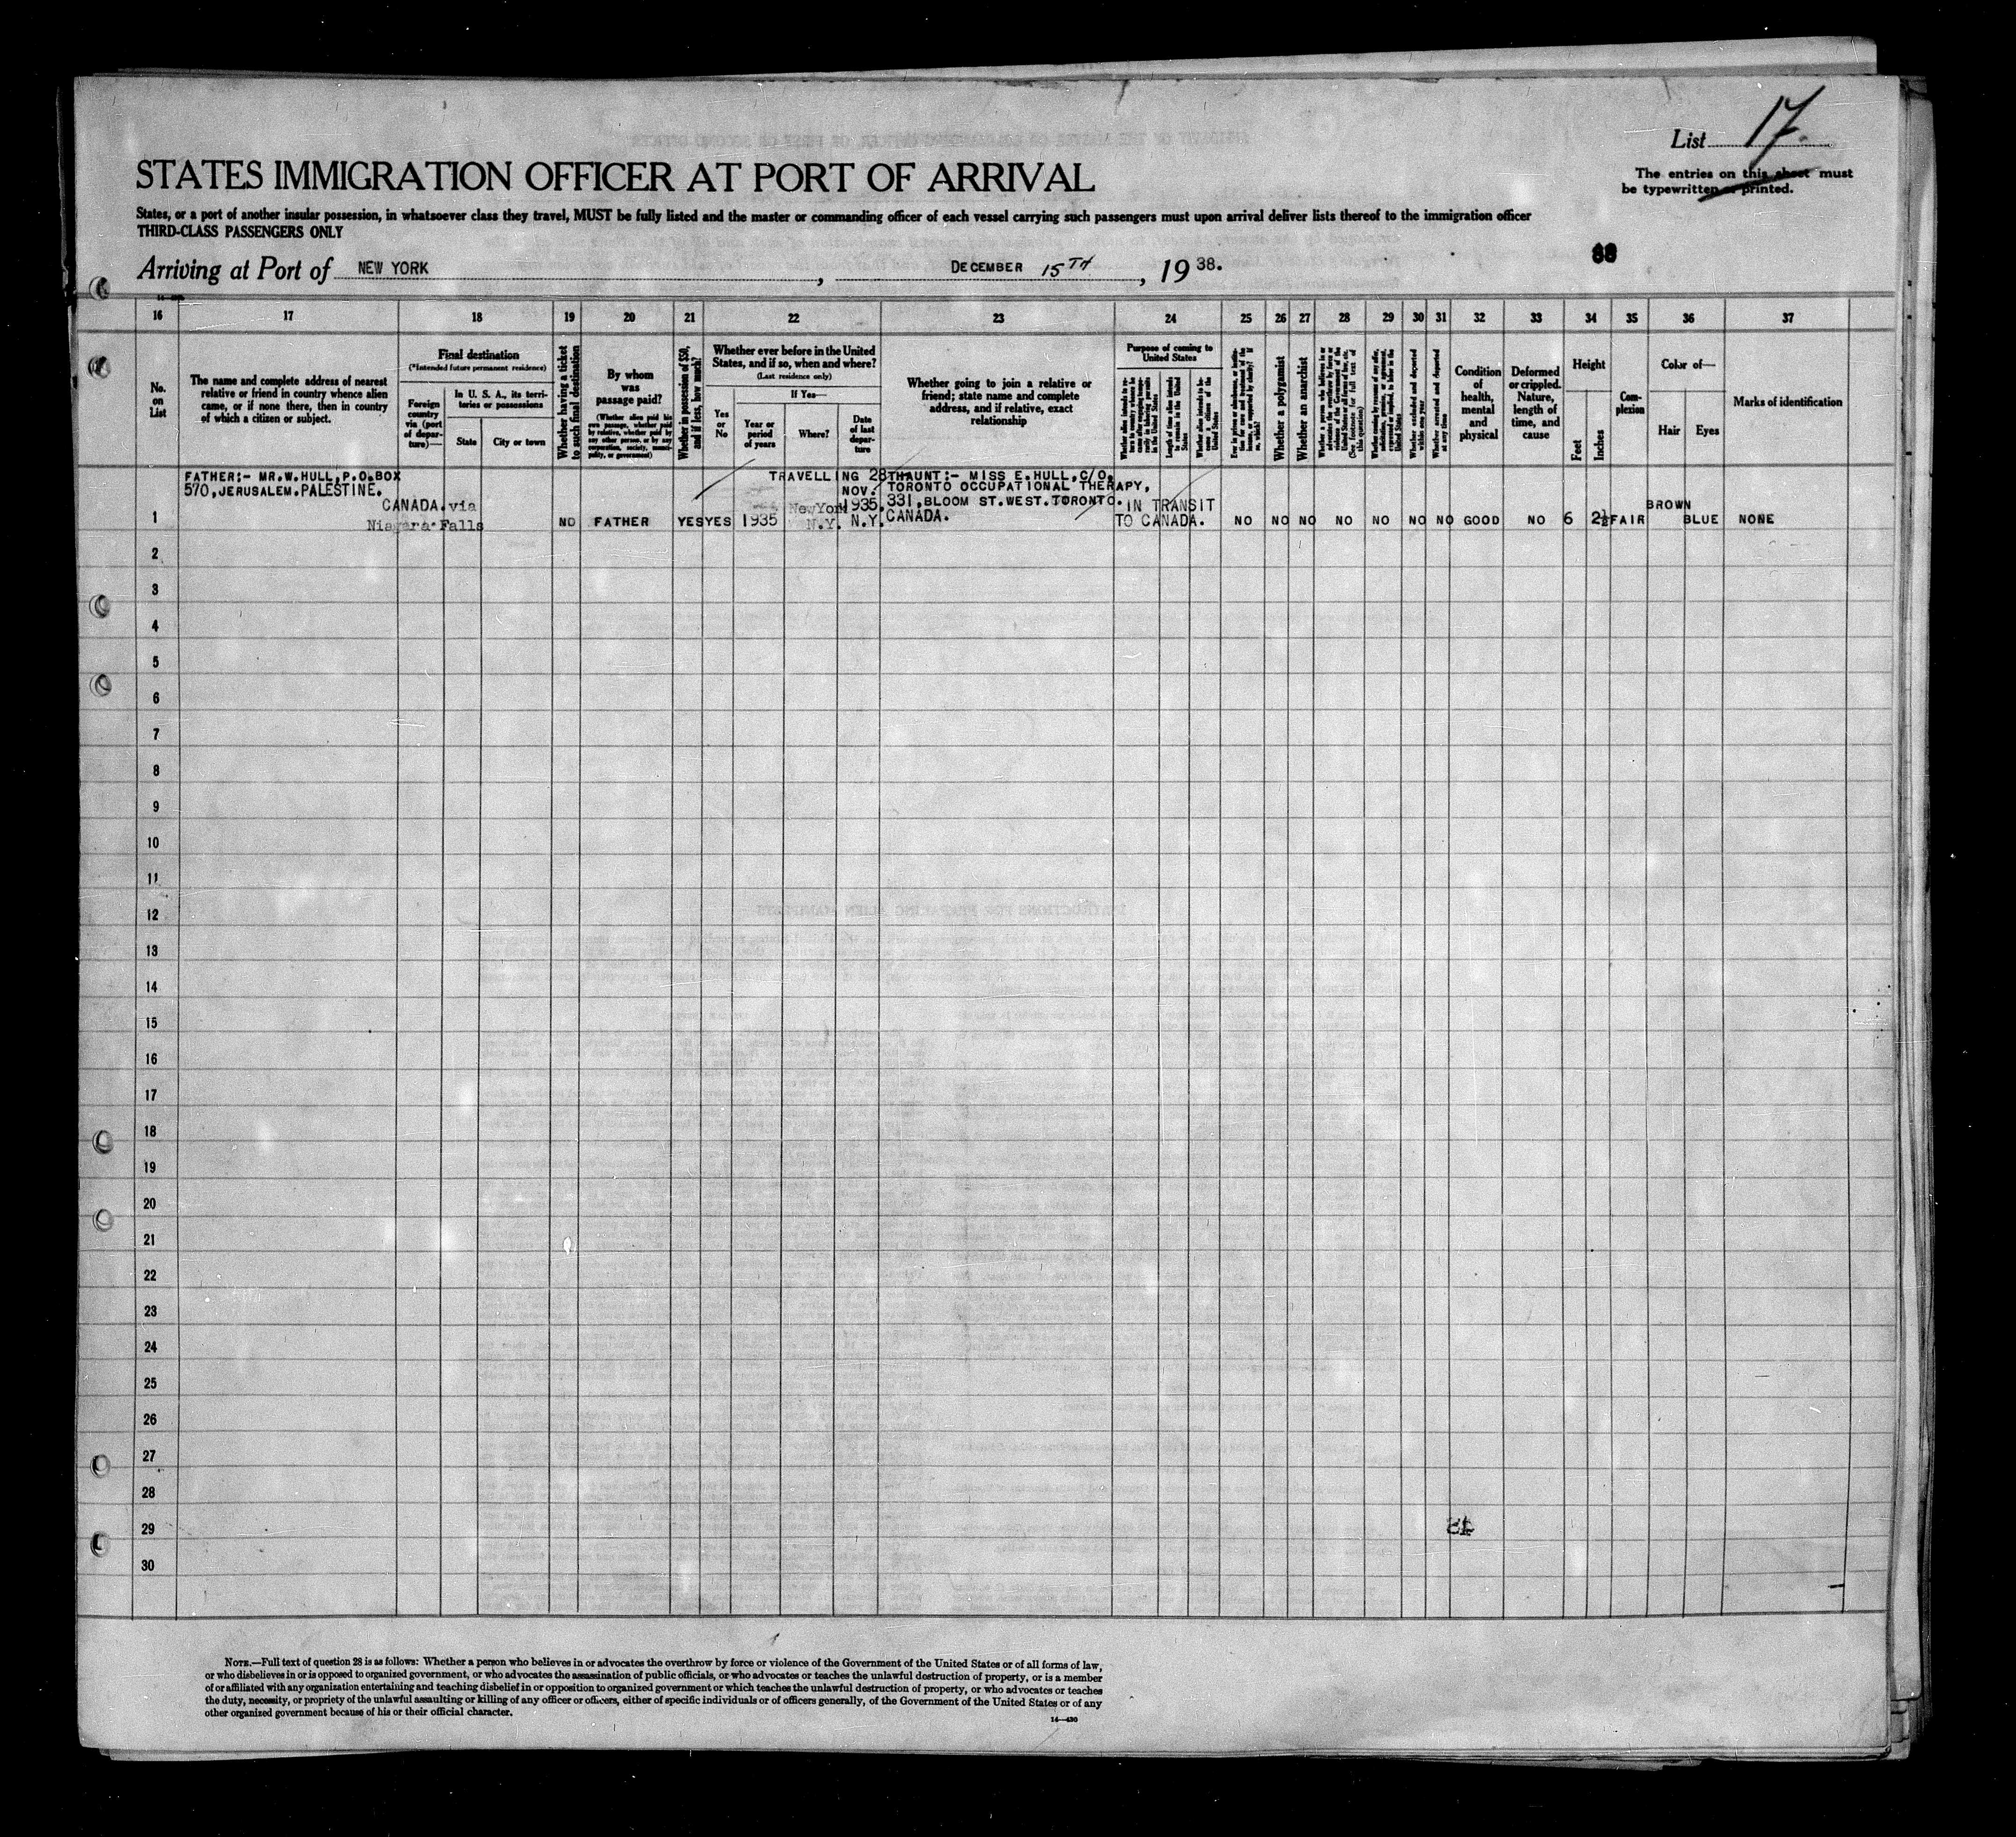 List 17.
The entries on this sheet must
be typewritten or printed.
STATES IMMIGRATION OFFICER AT PORT OF ARRIVAL
States, or a port of another insular possession, in whatsoever class they travel, MUST be fully listed and the master or commanding officer of each vessel carrying such passengers must upon arrival deliver lists thereof to the immigration officer
THIRD-CLASS PASSENGERS ONLY
88
Arriving at Port of NEW YORK, DECEMBER 15TH, 1938.
16 17 18 19 20 21 22 23 24 25 26 27 28 29 30 31 32 33 34 35 36 37
No.
on
List
The name and complete address of nearest
relative or friend in country whence alien
came, or if none there, then in country
of which a citizen or subject.
Final destination
(*Intended future permanent residence)
Foreign
country
via (port
of depar-
ture)—
In U. S. A., its terri-
tories or possessions
State
City or town
Whether having a ticket
to such final destination
By whom
was
passage paid?
(Whether alien paid his
own passage, whether paid
by relative, whether paid by
any other person, or by any
corporation, society, munici-
pality, or government)
Whether in possession of $50,
and if less, how much?
Whether ever before in the United
States, and if so, when and where?
(Last residence only)
Yes
or
No
If Yes—
Year or
period
of years
Where?
Date
of last
depar-
ture
Whether going to join a relative or
friend; state name and complete
address, and if relative, exact
relationship
Purpose of coming to
United States
Length of time alien intends
to remain in the United
States
Whether alien intends to be-
come a citizen of the
United States
Whether a polygamist
Whether an anarchist
Whether arrested and deported
at any time
Condition
of
health,
mental
and
physical
Deformed
or crippled.
Nature,
length of
time, and
cause
Height
Feet
Inches
Com-
plexion
Color of—
Hair
Eyes
Marks of identification
FATHER:- MR.W.HULL, P.O.BOX
570, JERUSALEM. PALESTINE.
CANADA. via
Niagara Falls
1
NO FATHER YES YES 1935
New York
N.Y.
TRAVELLING 28TH
NOV.
1935,
N.Y.
AUNT:- MISS E. HULL, C/O,
TORONTO OCCUPATIONAL THERAPY,
331, BLOOM ST. WEST. TORONTO.
CANADA.
IN TRANSIT
TO CANADA.
NO NO NO NO NO NO NO GOOD NO 6 2½ FAIR BROWN BLUE NONE
2
3
4
5
6
7
8
9
10
11
12
13
14
15
16
17
18
19
20
21
22
23
24
25
26
27
28
29
30
NOTE.—Full text of question 28 is as follows: Whether a person who believes in or advocates the overthrow by force or violence of the Government of the United States or of all forms of law,
or who disbelieves in or is opposed to organized government, or who advocates the assassination of public officials, or who advocates or teaches the unlawful destruction of property, or is a member
of or affiliated with any organization entertaining and teaching disbelief in or opposition to organized government or which teaches the unlawful destruction of property, or who advocates or teaches
the duty, necessity, or propriety of the unlawful assaulting or killing of any officer or officers, either of specific individuals or of officers generally, of the Government of the United States or of any
other organized government because of his or their official character.
14—430